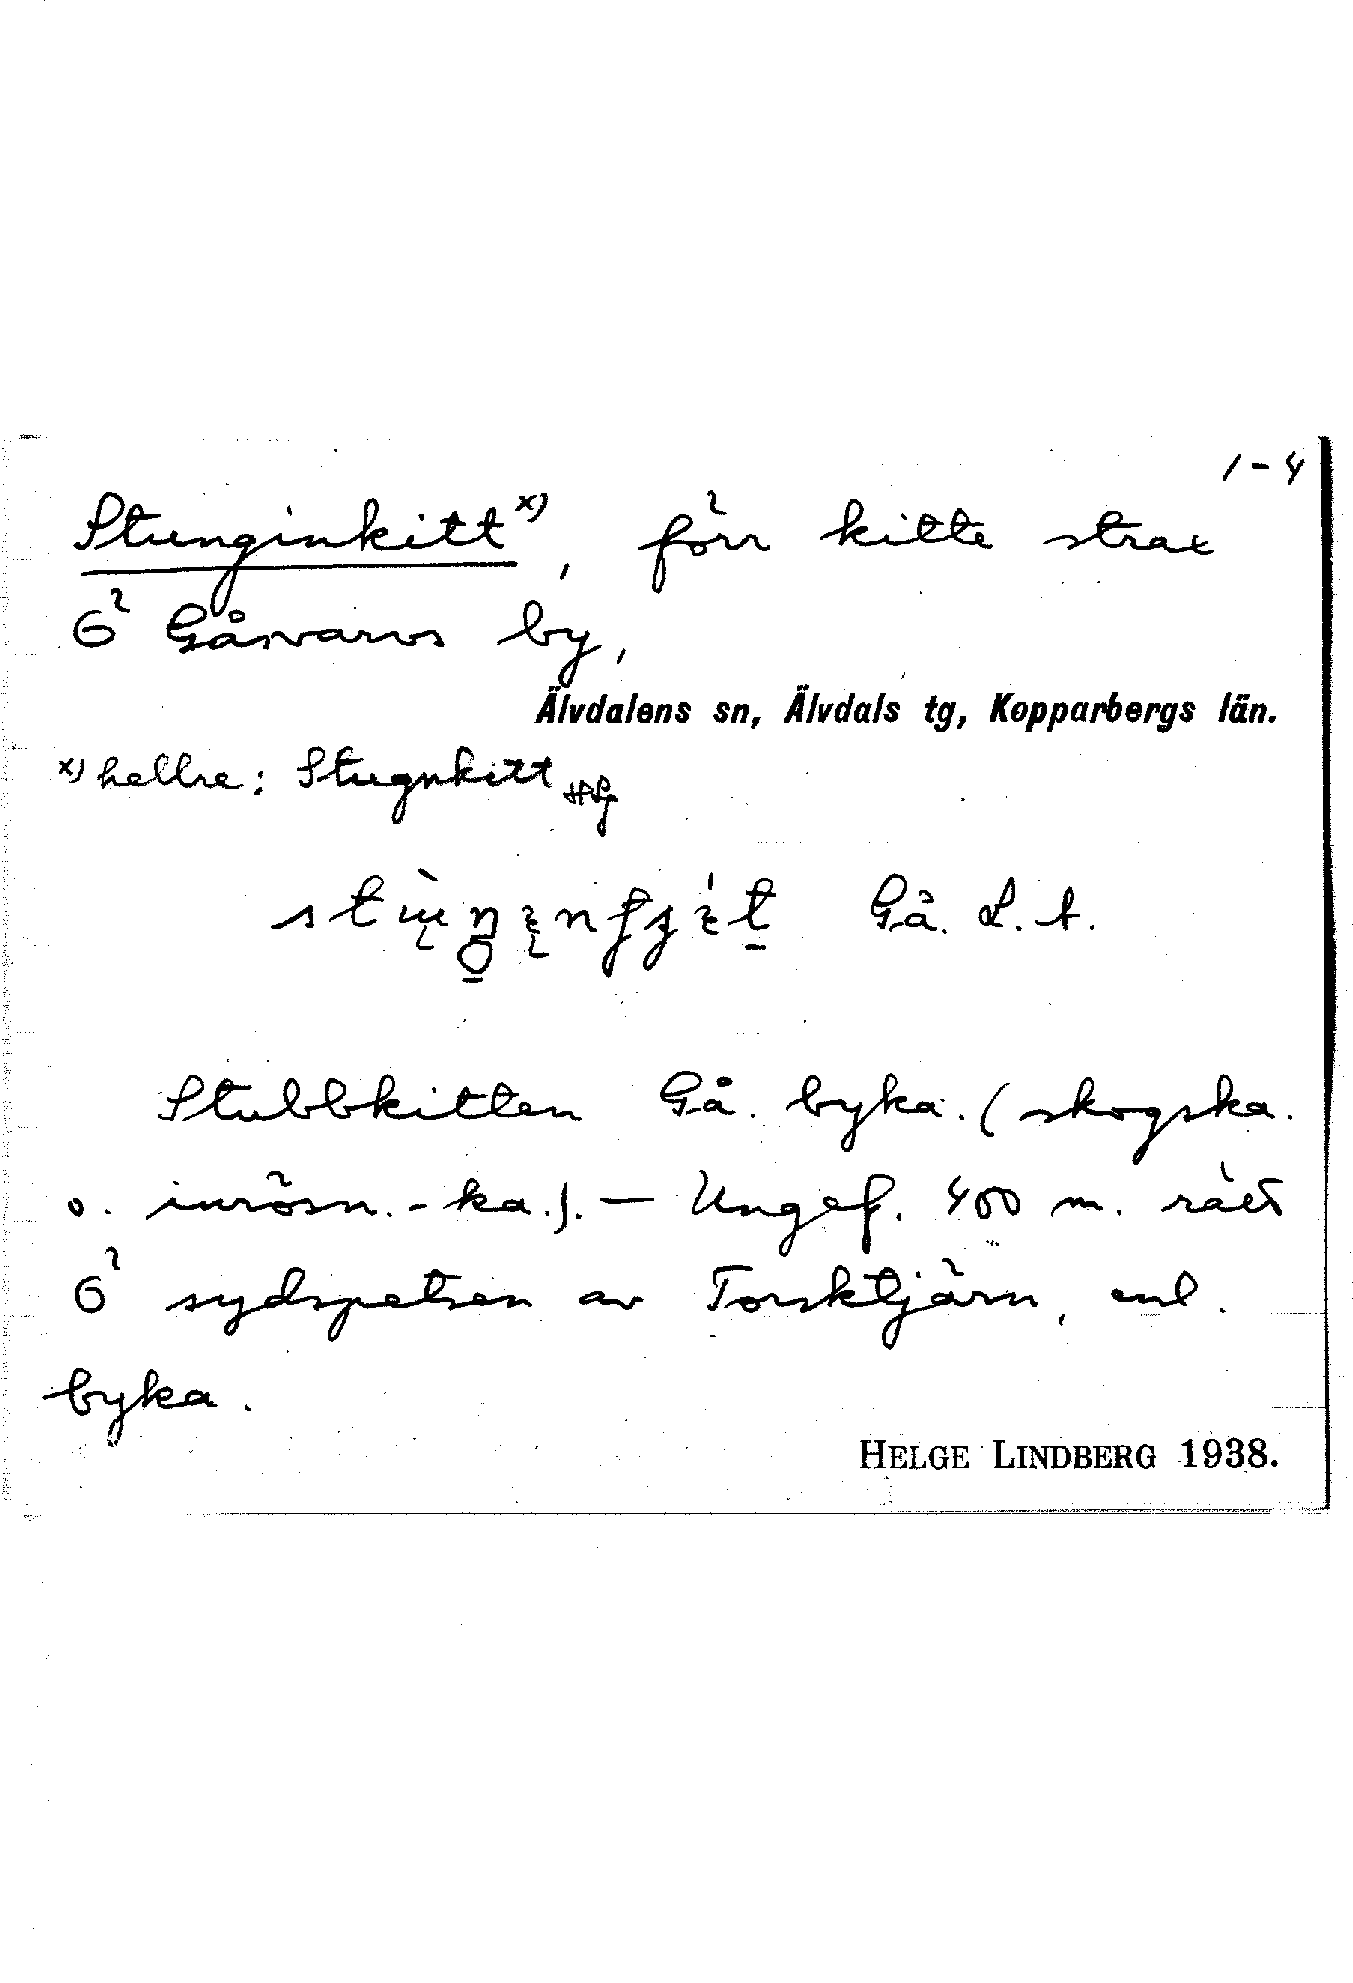 1-4
Stunginkitt x), förr kitte strax
Ö Gåsvarvs by,
Älvdalens sn, Älvdals tg, Kopparbergs län.
x) hellre: Stugnkitt
Gå. L. A.
Stubbkitten Gå. byka. (skogska.
o. inrösn.-ka.). — Ungef. 400 m. rätt
Ö sydspetsen av Torsktjärn, enl.
byka.
HELGE LINDBERG 1938.